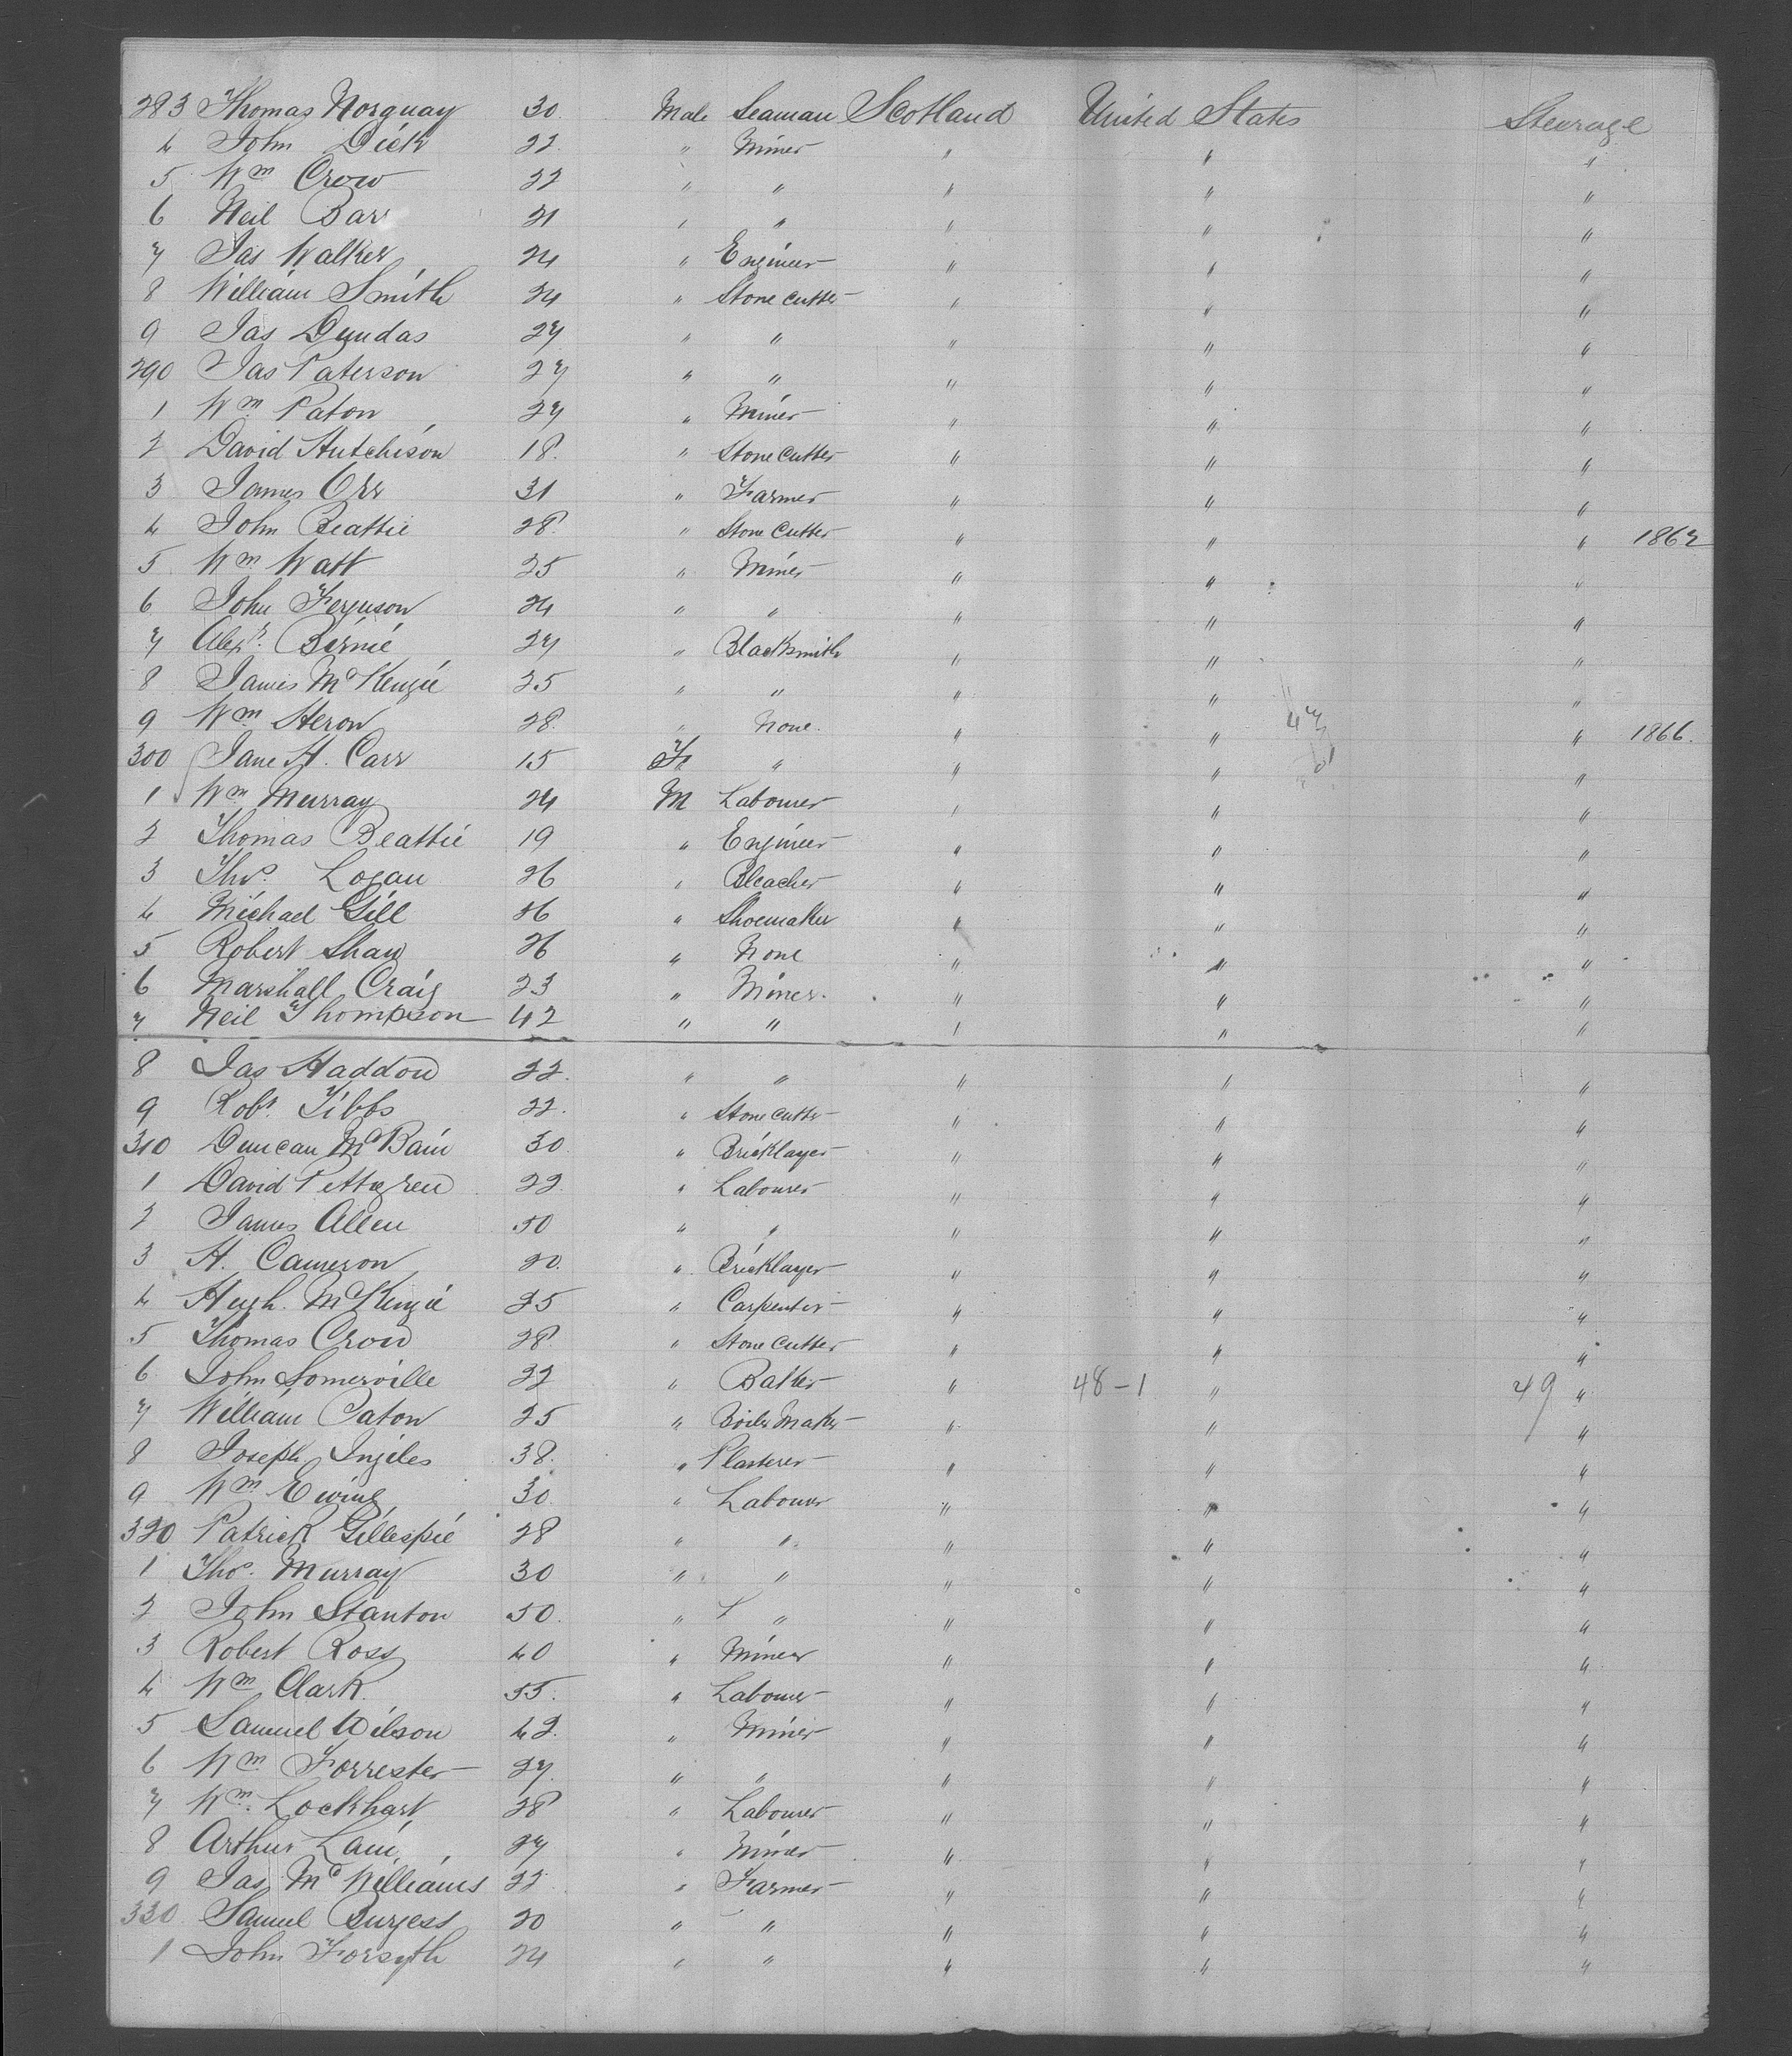 283 Thomas Norquay 30. Male Seaman Scotland United States Steerage
4 John Dick 22. " Miner " " "
5 Wm Crow 22 " " " " "
6 Neil Barr 21 " " " " "
7 Jas Walker 24 " Engineer " " "
8 William Smith 24 " Stone cutter " " "
9 Jas Dundas 27 " " " " "
290 Jas Paterson 27 " " " " "
1 Wm Paton 27 " Miner " " "
2 David Hutchison 18. " Stone cutter " " "
3 James Orr 31 " Farmer " " "
4 John Beattie 28. " Stone Cutter " " " 1867
5 Wm Watt 25 " Miner " " "
6 John Ferguson 24 " " " " "
7 Alexr. Birnie 27 " Blacksmith " " "
8 James McKenzie 25 " " " " "
9 Wm Heron 28. " None. " " 47 " 1866.
300 Jane H. Carr 15 F. " " " "
1 Wm Murray 24 M Labourer " " "
2 Thomas Beattie 19 " Engineer " " "
3 Thos. Logan 26 " Bleacher " " "
4 Michael Gill 26 " Shoemaker " " "
5 Robert Shaw 26 " None " " "
6 Marshall Craig 23 " Miner. " " "
7 Neil Thompson 42 " " " " "
8 Jas Haddow 22. " " " " "
9 Robt. Tibbs 22. " Stone cutter " " "
310 Duncan McBain 30 " Bricklayer " " "
1 David Pettigrew 22 " Labourer " " "
2 James Allen 50 " " " " "
3 H. Cameron 20. " Bricklayer " " "
4 Hugh. McKenzie 25 " Carpenter " " "
5 Thomas Crow 28. " Stone cutter " " "
6 John Somerville 22 " Baker " 48-1 " 49 "
7 William Paton 25 " Boiler Maker " " "
8 Joseph Ingiles 38. " Plasterer " " "
9 Wm Ewing 30. " Labourer " " "
320 Patrick Gillespie 28 " " " " "
1 Thos. Murray 30 " " " " "
2 John Stanton 50. " L " " " "
3 Robert Ross 40 " Miner " " "
4 Wm Clark. 55. " Labourer " " "
5 Samuel Wilson 42. " Miner " " "
6 Wm Forrester 27. " " " " "
7 Wm. Lockhart 28 " Labourer " " "
8 Arthur Lain 27 " Miner " " "
9 Jas McWilliams 22 " Farmer " " "
330 Samuel Burgess 20 " " " " "
1 John Forsyth 24 " " " " "